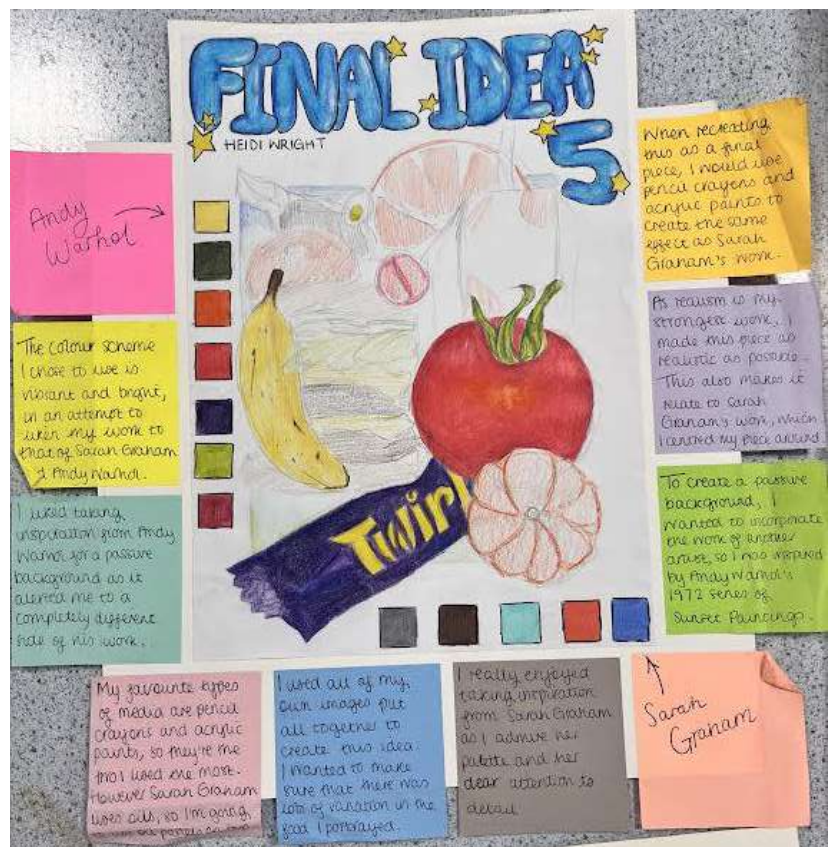 FINAL IDEA
5
HEIDI WRIGHT
Andy
Warhol
The colour scheme
I chose to use is
vibrant and bright,
in an attempt to
liken my work to
that of Sarah Graham
& Andy Warhol.
I liked taking
inspiration from Andy
Warhol for a passive
background as it
alerted me to a
completely different
side of his work.
When recreating
this as a final
piece, I would use
pencil crayons and
acrylic paints to
create the same
effect as Sarah
Graham's work.
As realism is my
strongest work, I
made this piece as
realistic as possible.
This also makes it
relate to Sarah
Graham's work, which
I centred my piece around.
To create a passive
background, I
wanted to incorporate
the work of another
artist, so I was inspired
by Andy Warhol's
1972 series of
Sunset Paintings.
Twirl
My favourite types
of media are pencil
crayons and acrylic
paints, so they're the
two I used the most.
However Sarah Graham
uses oils, so I'm going
I used all of my
own images put
all together to
create this idea.
I wanted to make
sure that there was
lots of variation in the
food I portrayed.
I really enjoyed
taking inspiration
from Sarah Graham
as I admire her
palette and her
clear attention to
detail
Sarah
Graham